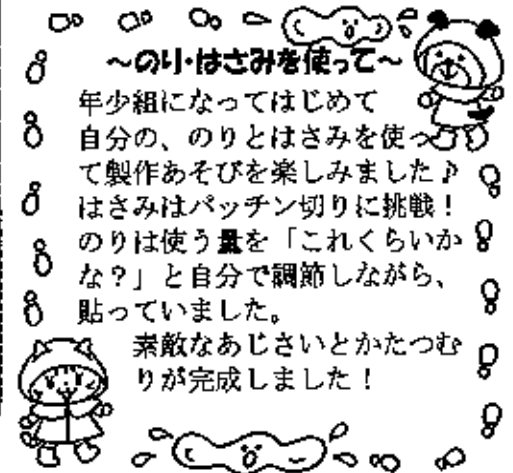 ～のり・はさみを使って～
年少組になってはじめて
自分の、のりとはさみを使っ
て製作あそびを楽しみました♪
はさみはパッチン切りに挑戦！
のりは使う量を「これくらいか
な？」と自分で調節しながら、
貼っていました。
素敵なあじさいとかたつむ
りが完成しました！